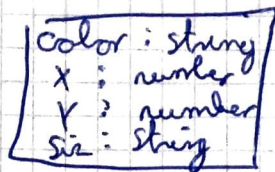 color : string
X : number
Y : number
siz : string